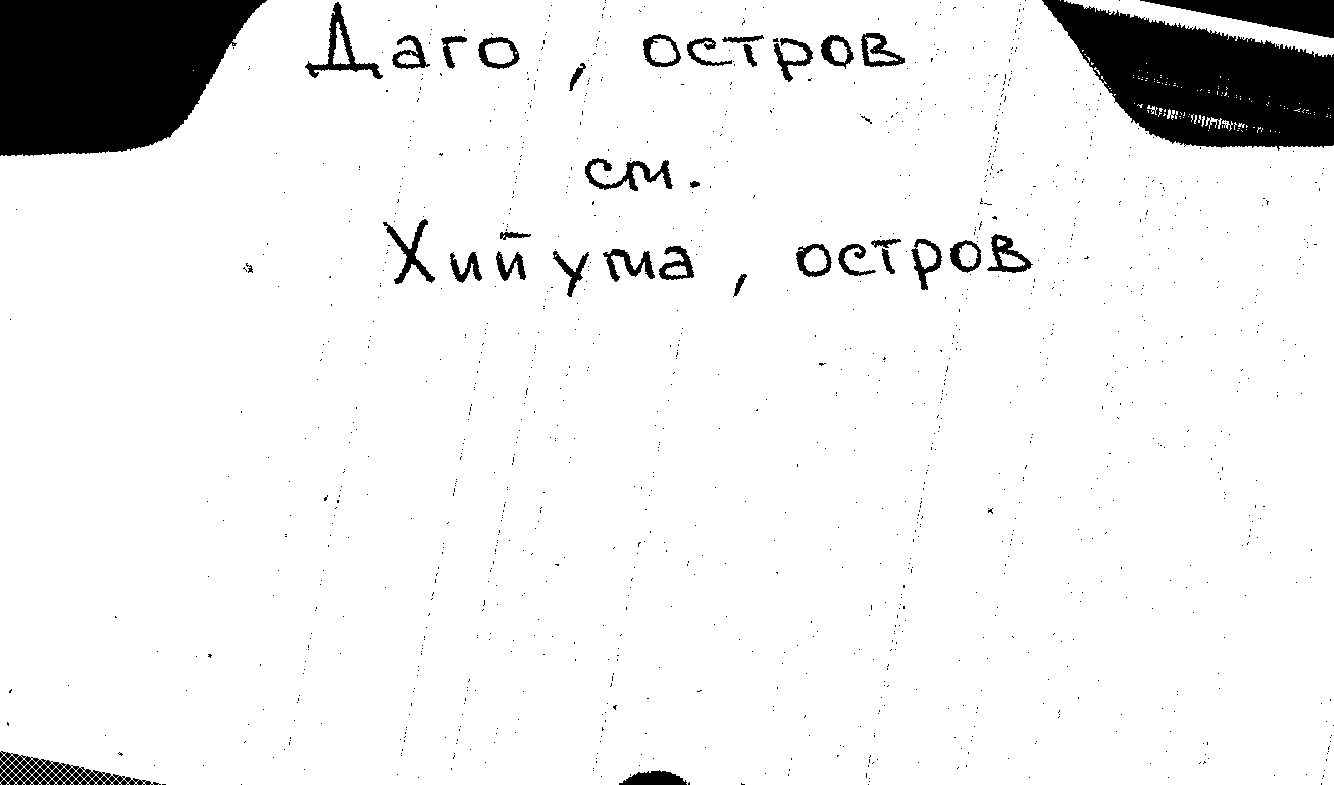 Даго, остров
см.
Хийума, остров